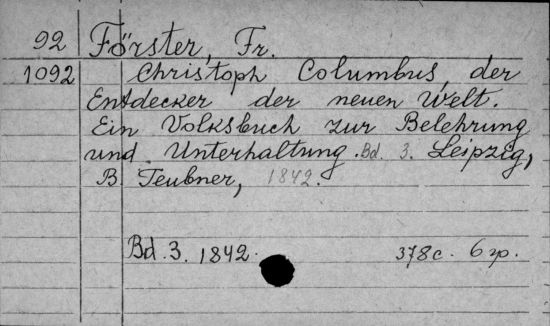 92 Förster, Fr.
1092 Christoph Columbus, der
Entdecker der neuen Welt.
Ein Volksbuch zur Belehrung
und Unterhaltung. Bd. 3. Leipzig,
B Teubner, 1842.
Bd. 3. 1842. 378c. 6 гр.